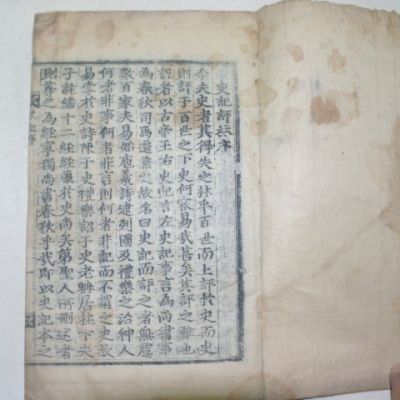 史記評林序
余夫史者其得失之林乎百世而上評於史而史
則評于百世之下史何容易哉甚矣其評之難也
說者以古帝王右史記言左史記事言為尚書事
為春秋司馬遷兼之故名曰史記而評之者無慮
數百家夫易始庖羲詩逮列國及禮樂之治神人
何者非事言則何者非記而不謂之史故
易雲於史詩陳于史禮樂詔于史老聃居柱下夫
子託繙十二經經藏於史尚矣第聖人所刪述者
則尊之為經寧獨尚書春秋乎哉即以史記本之